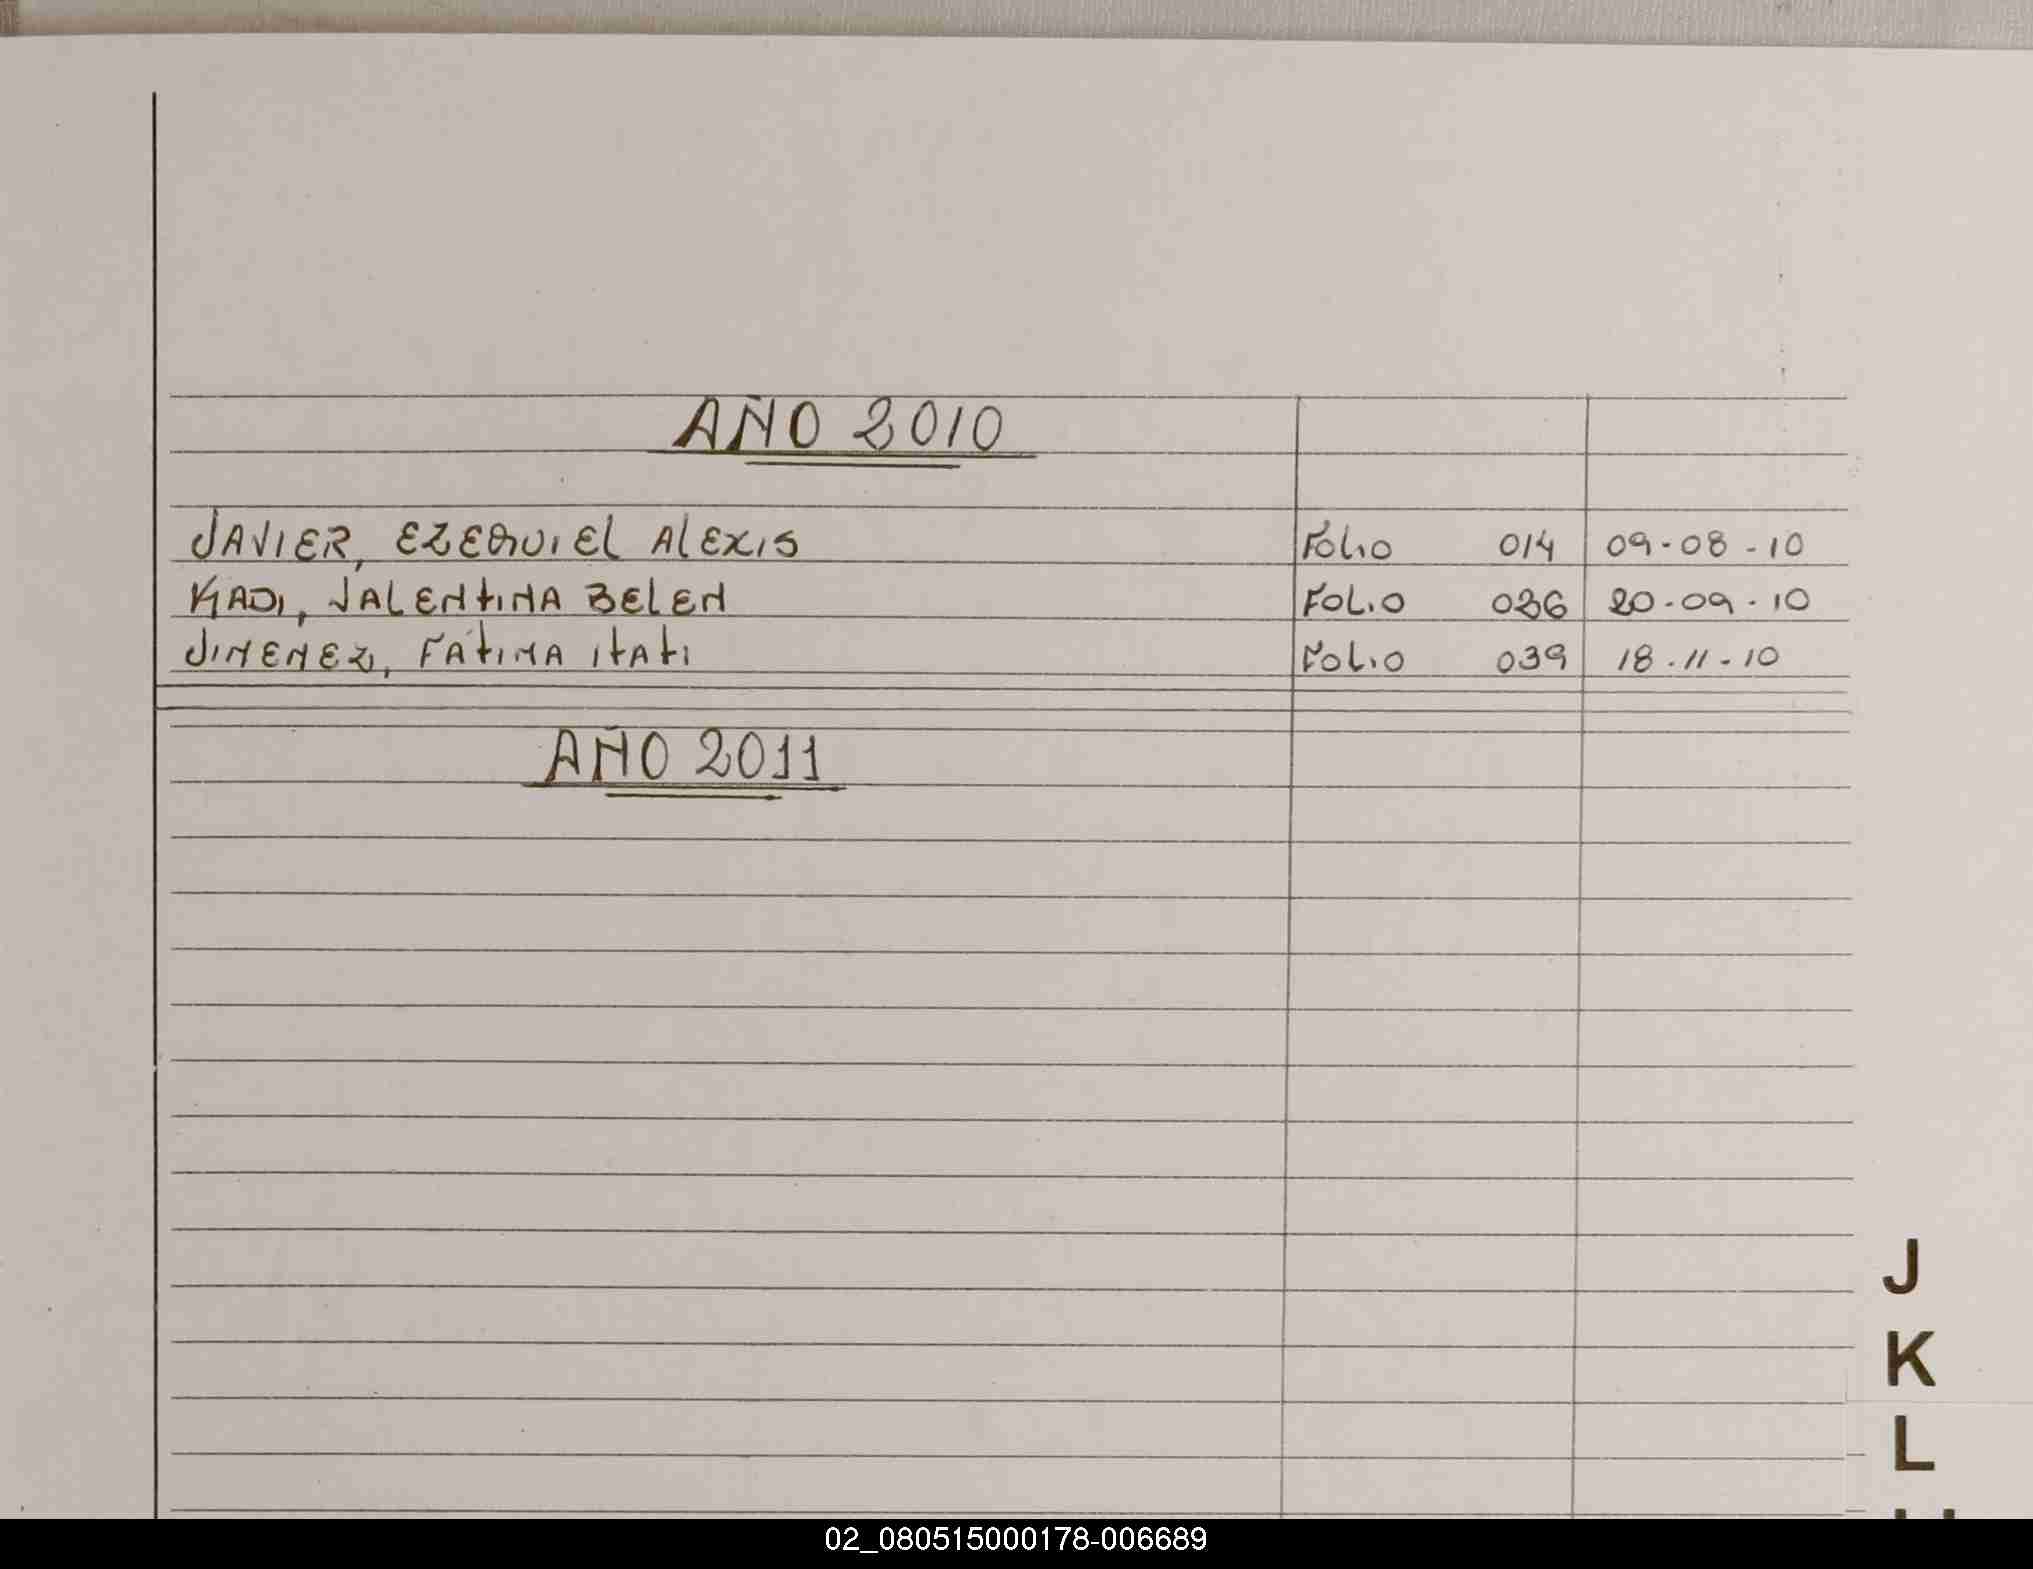 AÑO 2010
JAVIER, EZEQUIEL ALEXIS Folio 014 09-08-10
KADI, VALENTINA BELEN FOLIO 036 20-09-10
JIMENEZ, FATIMA ITATI FOLIO 039 18-11-10
AÑO 2011
J
K
L
02_080515000178-006689